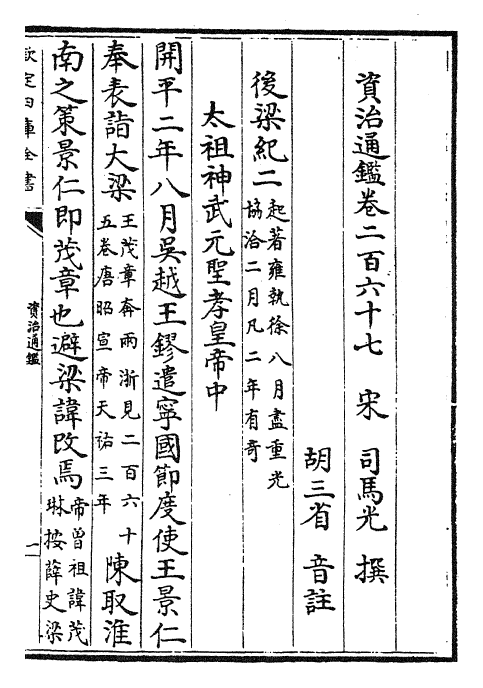 資治通鑑卷二百六十七　宋　司馬光　撰
胡三省　音註
後梁紀二 起著雍執徐八月盡重光
協洽二月凡二年有奇
太祖神武元聖孝皇帝中
開平二年八月吳越王鏐遣寧國節度使王景仁
奉表詣大梁 王茂章奔兩浙見二百六十
五卷唐昭宣帝天祐三年 陳取淮
南之策景仁即茂章也避梁諱改焉 帝曾祖諱茂
琳按薛史梁
欽定四庫全書
資治通鑑
一